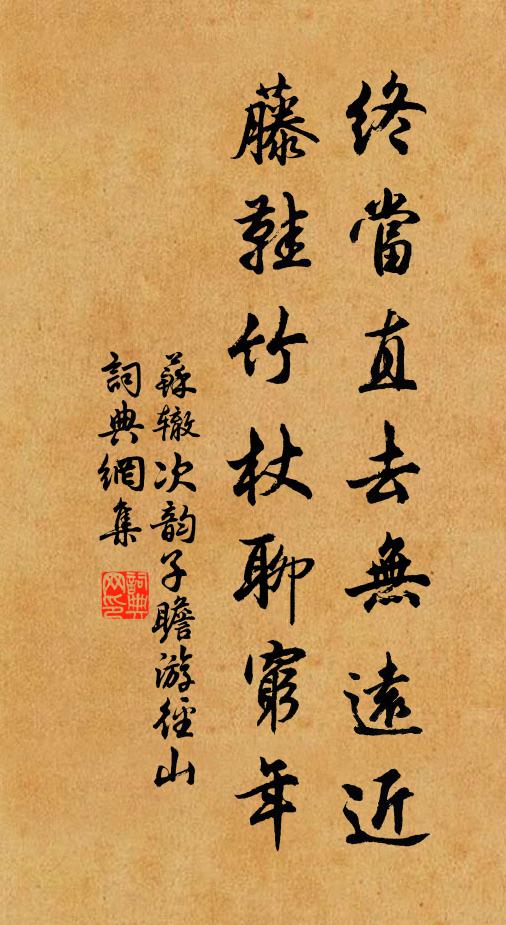 終當直去無遠近
藤鞋竹杖聊窮年
蘇辙次韵子瞻游徑山
詞典網集
詞典网印